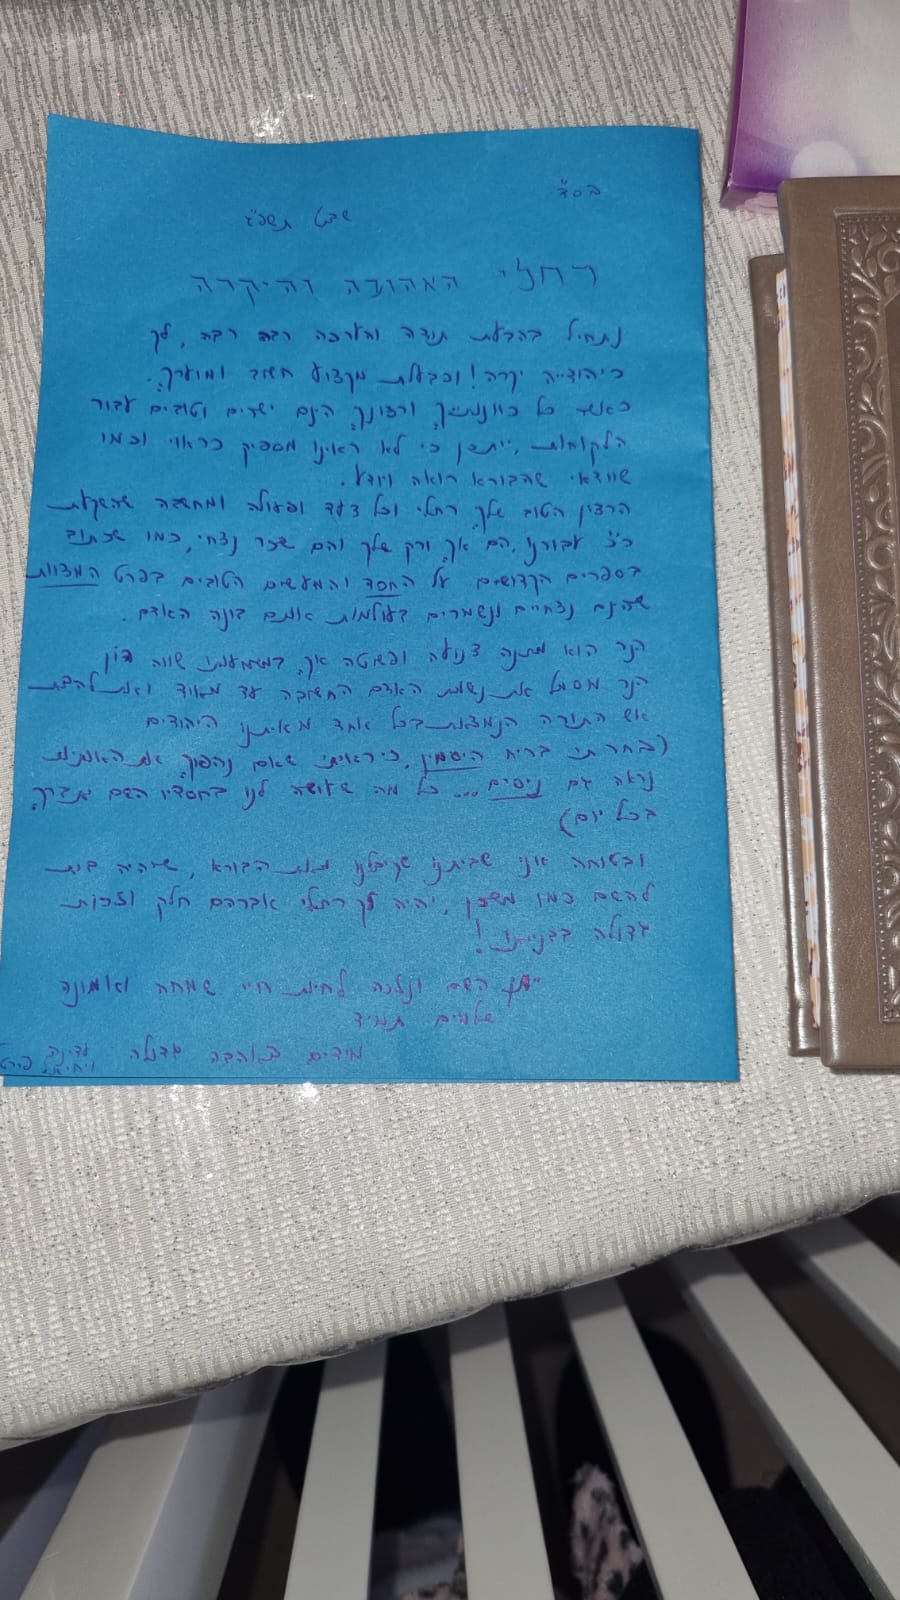 בס"ד
שבט תשפ"ג
רחלי האהובה והיקרה
נתחיל בהבעת תודה והערכה רבה רבה, לך
כיהודייה יקרה! וכבעלת מקצוע חשוב ומוערך.
כאשר כל כוונתך ורצונך הינם ישרים וטובים עבור
הלקוחות, ייתכן כי לא ראינו מספיק כראוי וכמו
שוודאי שהבורא רואה ויודע.
הרצון הטוב שלך רחלי וכל צעד ופעולה ומחשבה שהשקעת
כ"כ עבורנו, הם אך ורק שלך והם שכר נצחי, כמו שכתוב
בספרים הקדושים על החסד והמעשים הטובים בפרט המצוות
שהינם נצחיים ונשמרים בעולמות אותם בונה האדם.
הנר הוא מתנה צנועה ופשוטה אך במשמעותו שווה הון
הנר מסמל את נשמת האדם החשובה עד מאוד ואת להבת
אש התורה הנמצאת בכל אחד מאיתנו היהודים
(בחרתי בריח היסמין, כי ראיתי שאם נהפוך את האותיות
נראה גם ניסים... כל מה שעושה לנו בחסדיו השם יתברך
בכל יום)
ובטוחה אני שביתנו שקיבלנו מאת הבורא, שיהיה בית
להשם כמו משכן, יהיה לך רחלי אברהם חלק וזכות
גדולה בבנייתו!
ייתן השם ונזכה לחיות חיי שמחה ואמונה
שלווים תמיד
מודים באהבה גדולה
ויחיאל